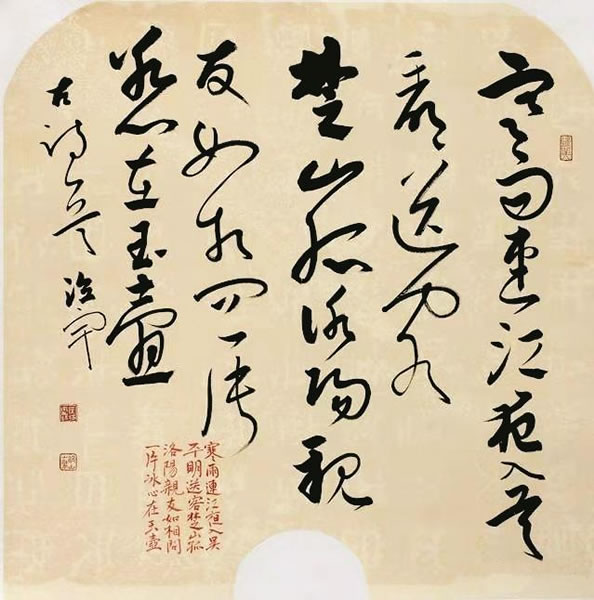 寒雨連江夜入吳
平明送客
楚山孤洛陽親
友如相问一片
冰心在玉壺
古詩一首
寒雨連江夜入吳
平明送客楚山孤
洛陽親友如相問
一片冰心在玉壺